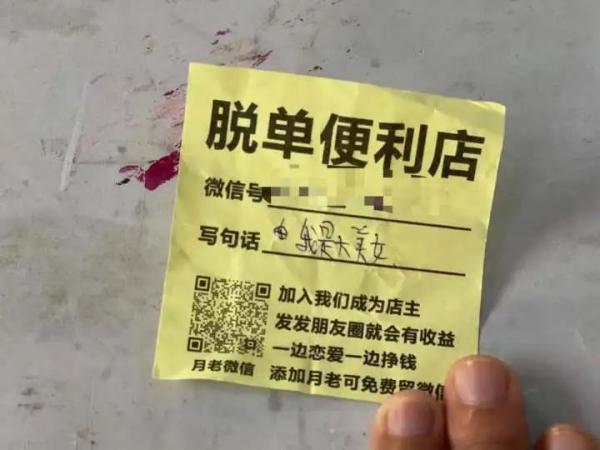 脱单便利店
微信号
写句话 我是大美女
加入我们成为店主
发发朋友圈就会有收益
一边恋爱一边挣钱
月老微信 添加月老可免费留微信